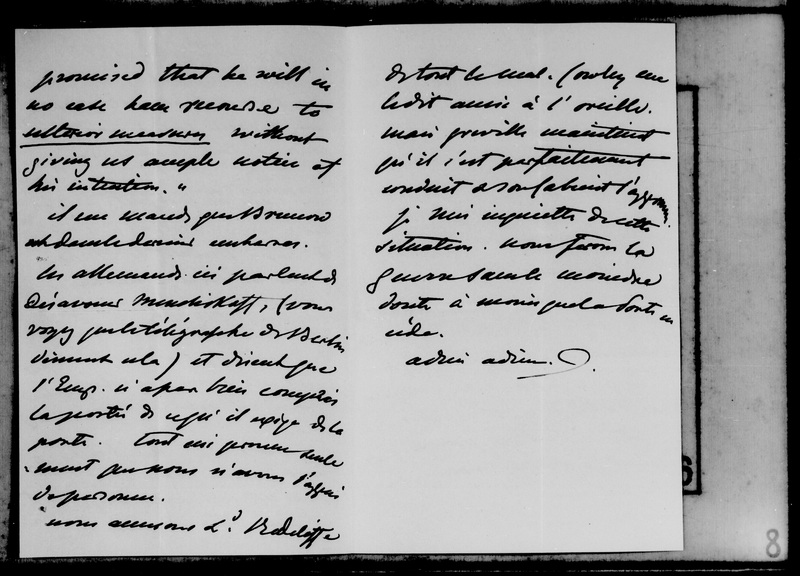 promised that he will in
no case have recourse to
ulterior measures without
giving us ample notice of
his intention."
il me mande que Brunow
est dans le dernier embarras.
les allemands ici parlent de
désavouer Menchikoff, (vous
voyez que le télégraphe de Berlin
dément cela) et disent que
l'Emp. n'a pas bien compris
la portée de ce qu'il exige de la
porte. tout ceci prouve seule
-ment que nous n'avons l'appui
de personne.
nous accusons Ld. Redcliffe
de tout le mal. Cowley me
le dit aussi à l'oreille.
mais Greville maintient
qu'il s'est parfaitement
conduit
je suis inquiète de cette
situation. nous ferons la
guerre sans le moindre
doute à moins que la Porte ne
cède.
adieu adieu.
8